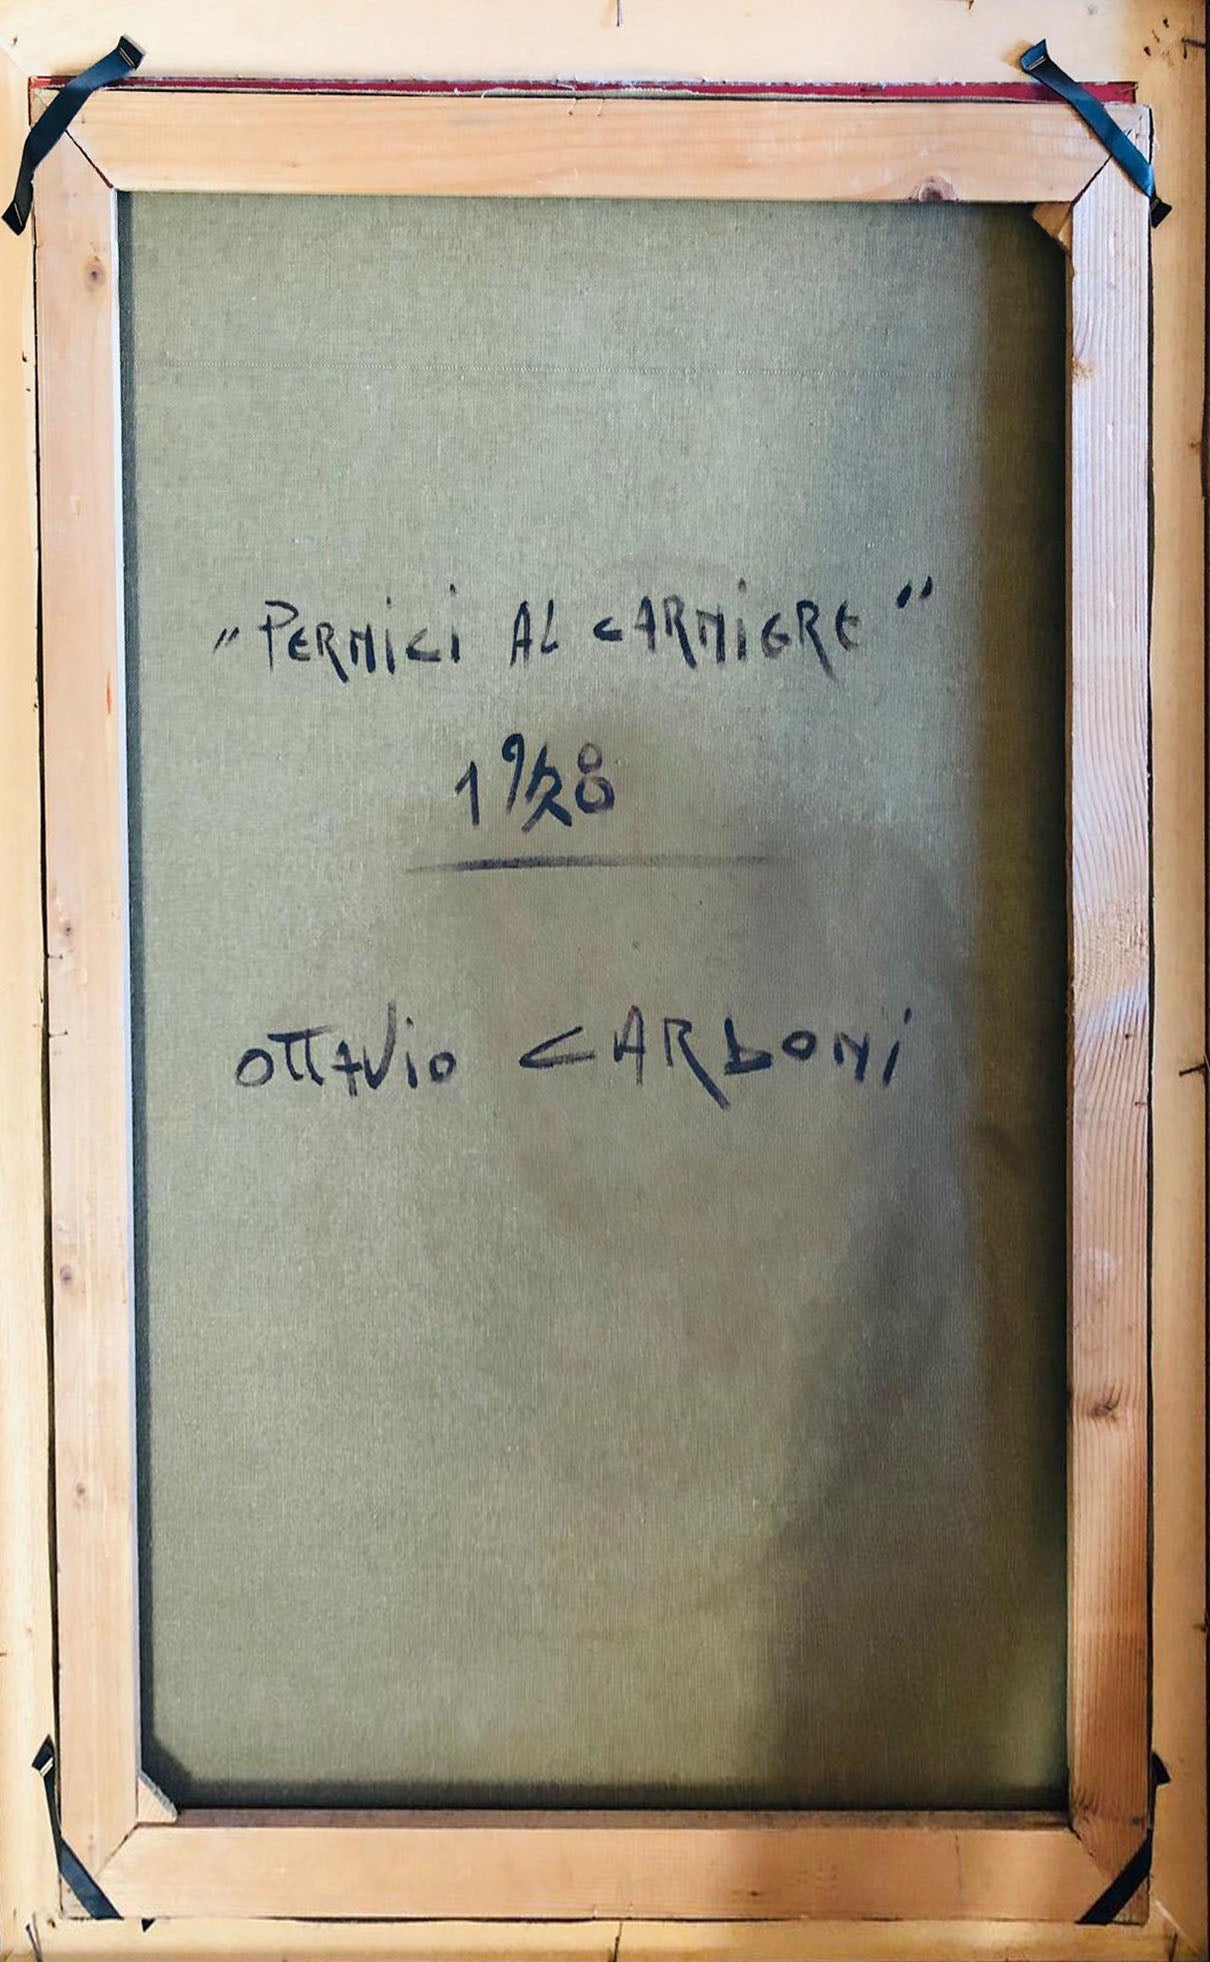 "PERNiCi AL CARNiERE"
OTTAViO CARbONi